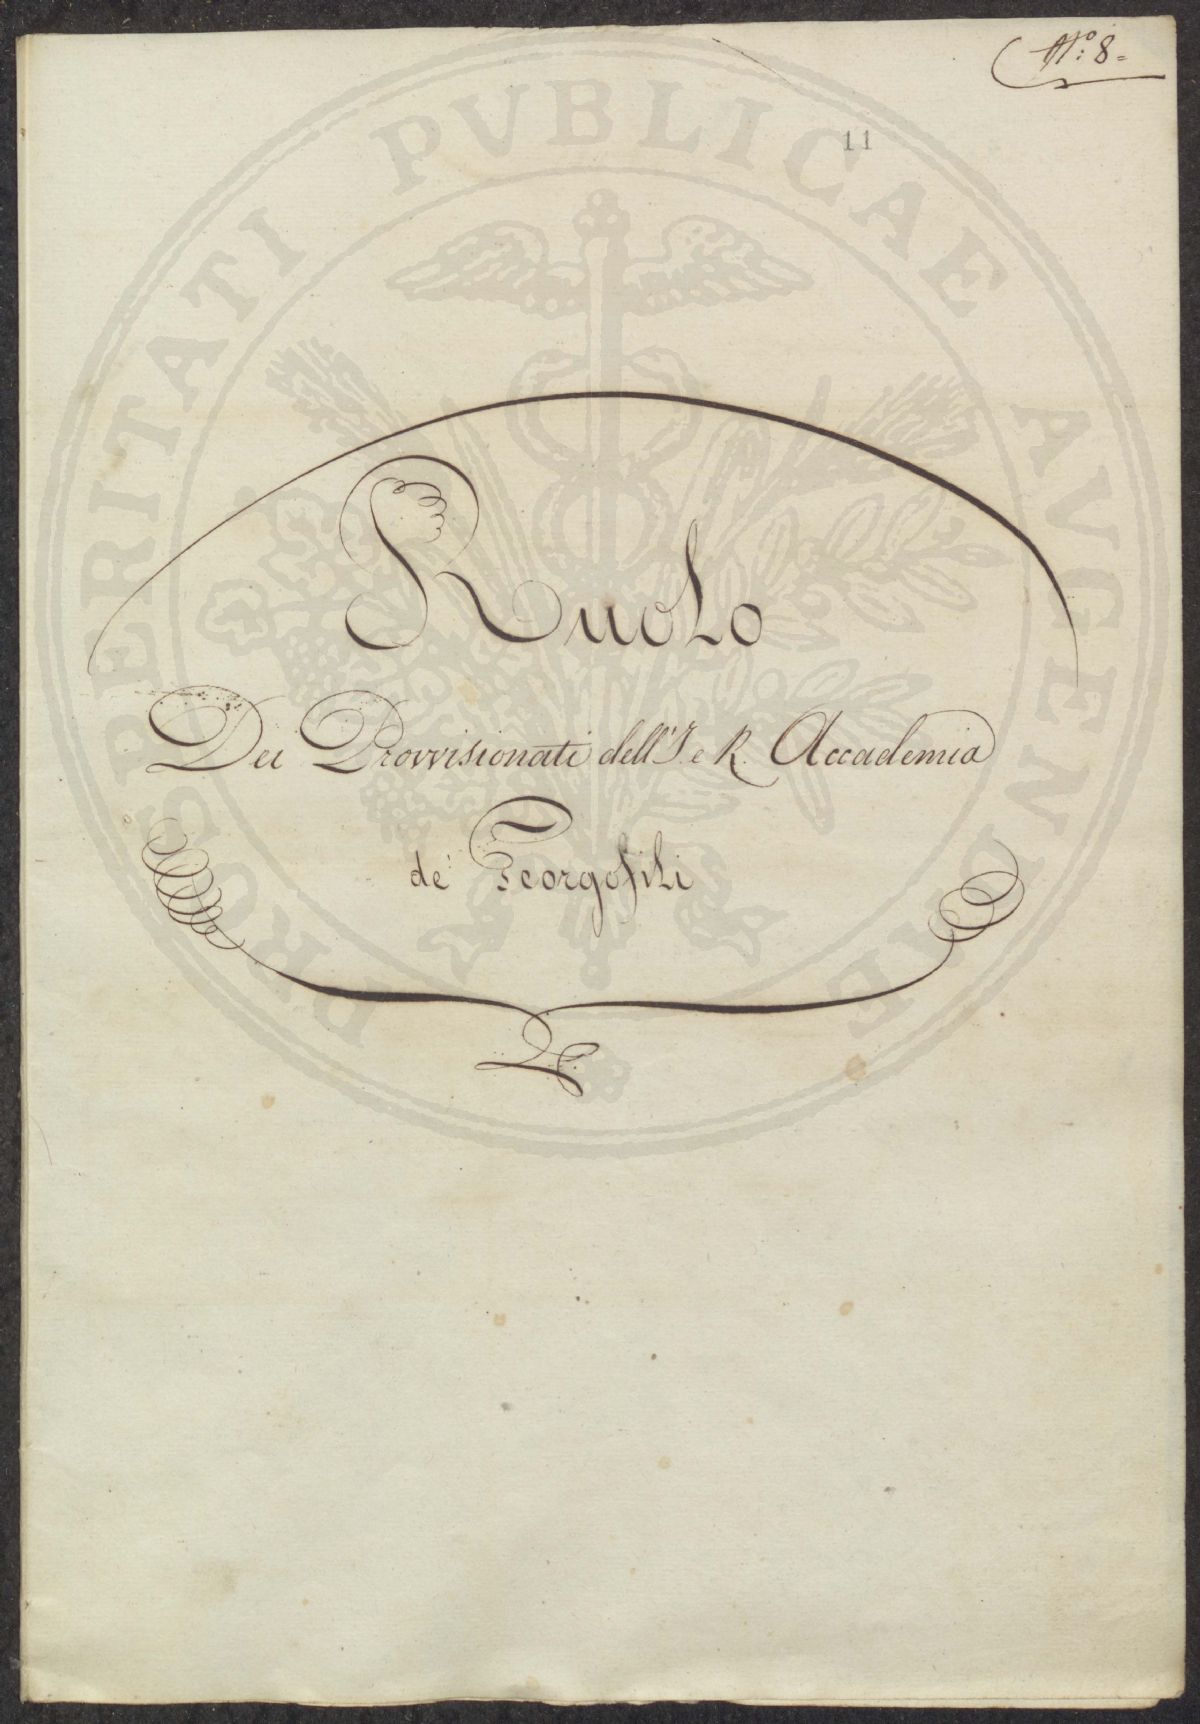 N.º 8=
11
PROSPERITATI PVBLICAE AVGENDAE
Ruolo
Dei Provvisionati dell'I. e R. Accademia
de' Georgofili